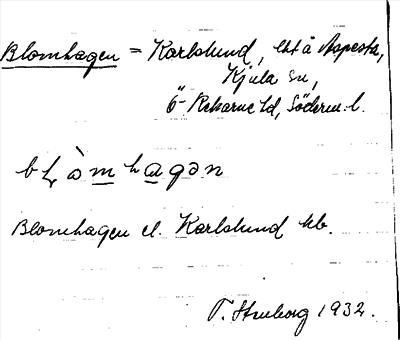 Blomhagen = Karlslund, lht å Aspesta,
Kjula sn,
Ö. Rekarne hd, Söderm. l.
Blomhagen el. Karlslund hb.
T. Struborg 1932.